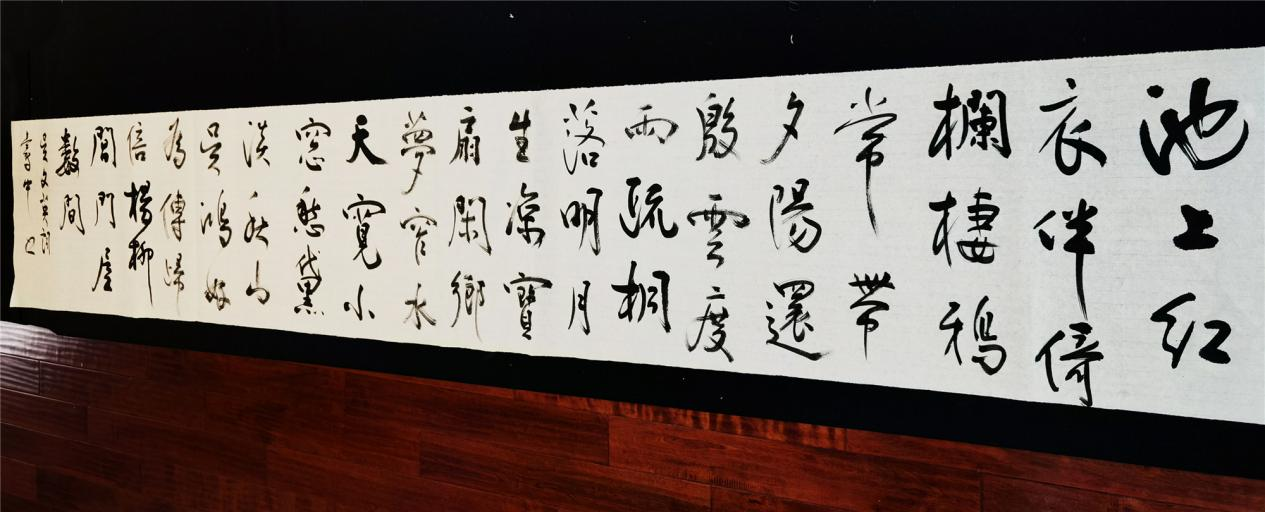 池上红
衣伴倚
欄棲鴉
常帶
夕陽還
殷雲度
雨疏桐
落明月
生凉寶
扇閑鄉
夢窄水
天寬小
窓愁黛
淡秋山
吴鴻好
為傳歸
信楊柳
閶門屋
數間
吴文英詞